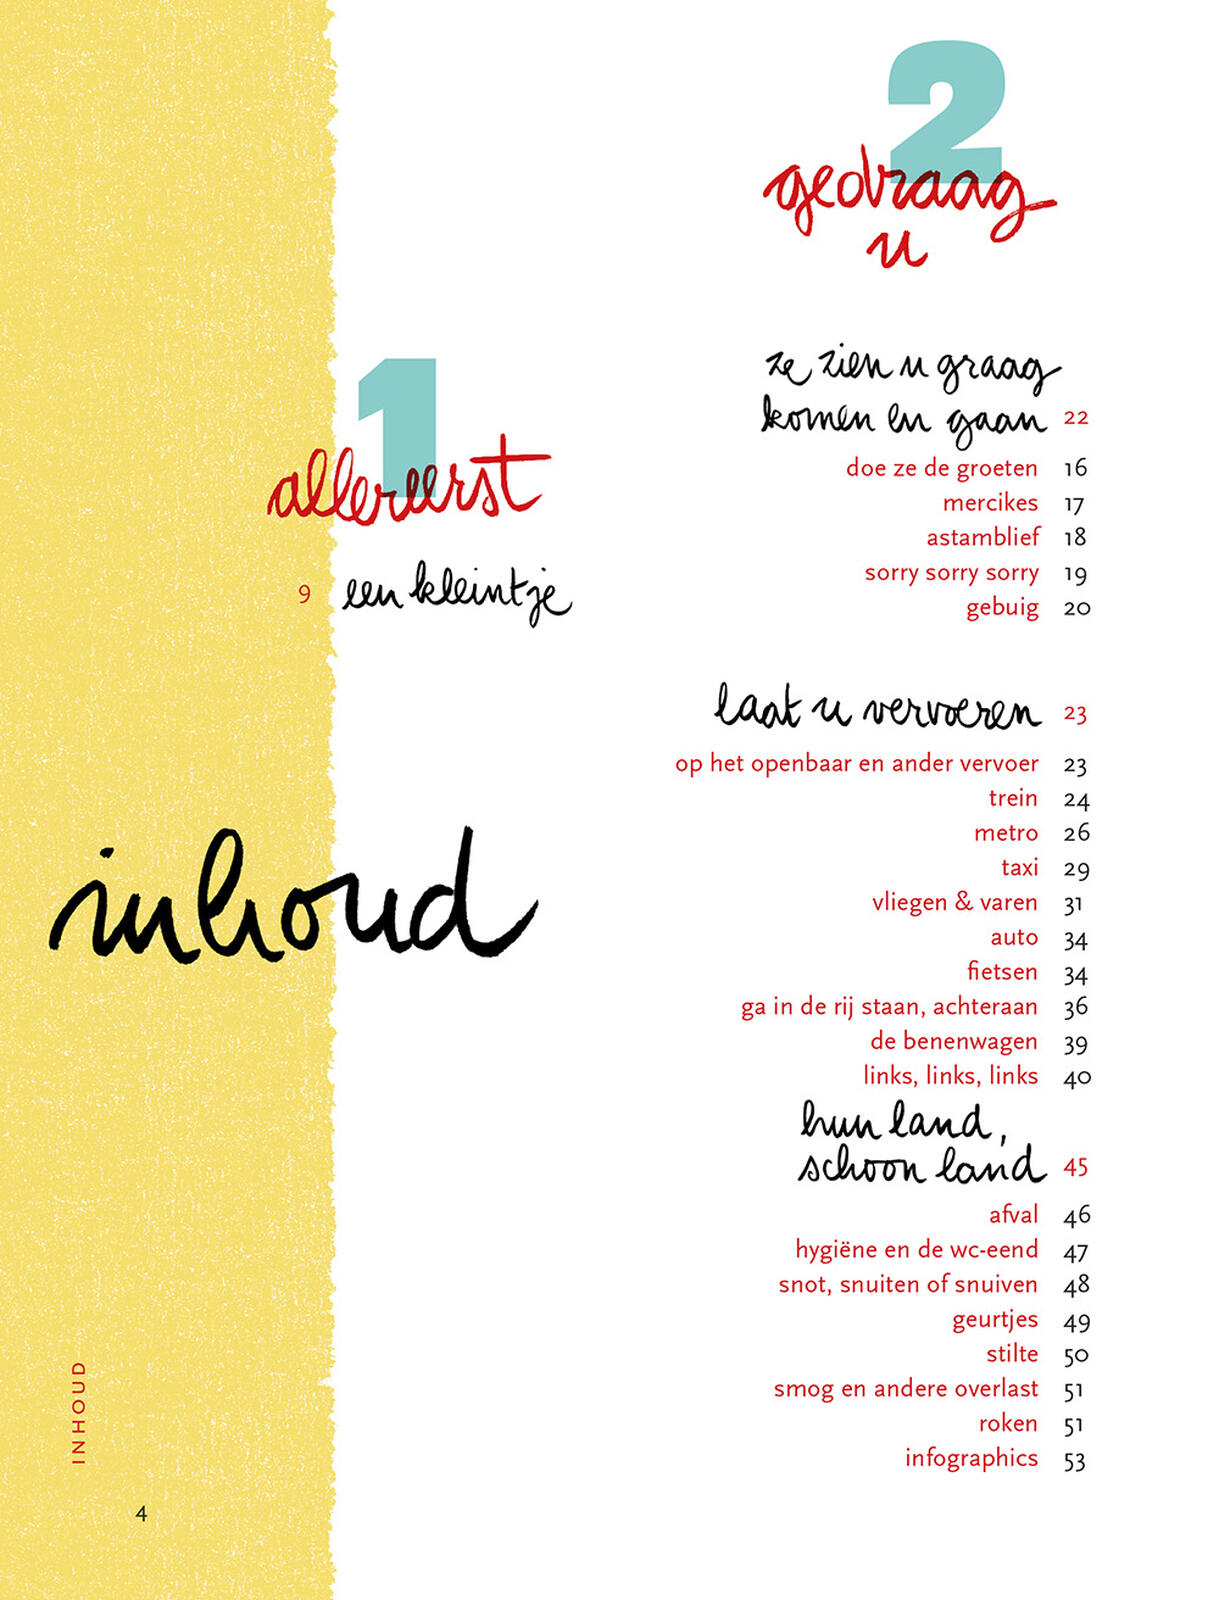 1
allereerst
9 een kleintje
inhoud
INHOUD
4
2
gedraag
u
ze zien u graag
komen en gaan 22
doe ze de groeten 16
mercikes 17
astamblief 18
sorry sorry sorry 19
gebuig 20
laat u vervoeren 23
op het openbaar en ander vervoer 23
trein 24
metro 26
taxi 29
vliegen & varen 31
auto 34
fietsen 34
ga in de rij staan, achteraan 36
de benenwagen 39
links, links, links 40
hun land,
schoon land 45
afval 46
hygiëne en de wc-eend 47
snot, snuiten of snuiven 48
geurtjes 49
stilte 50
smog en andere overlast 51
roken 51
infographics 53